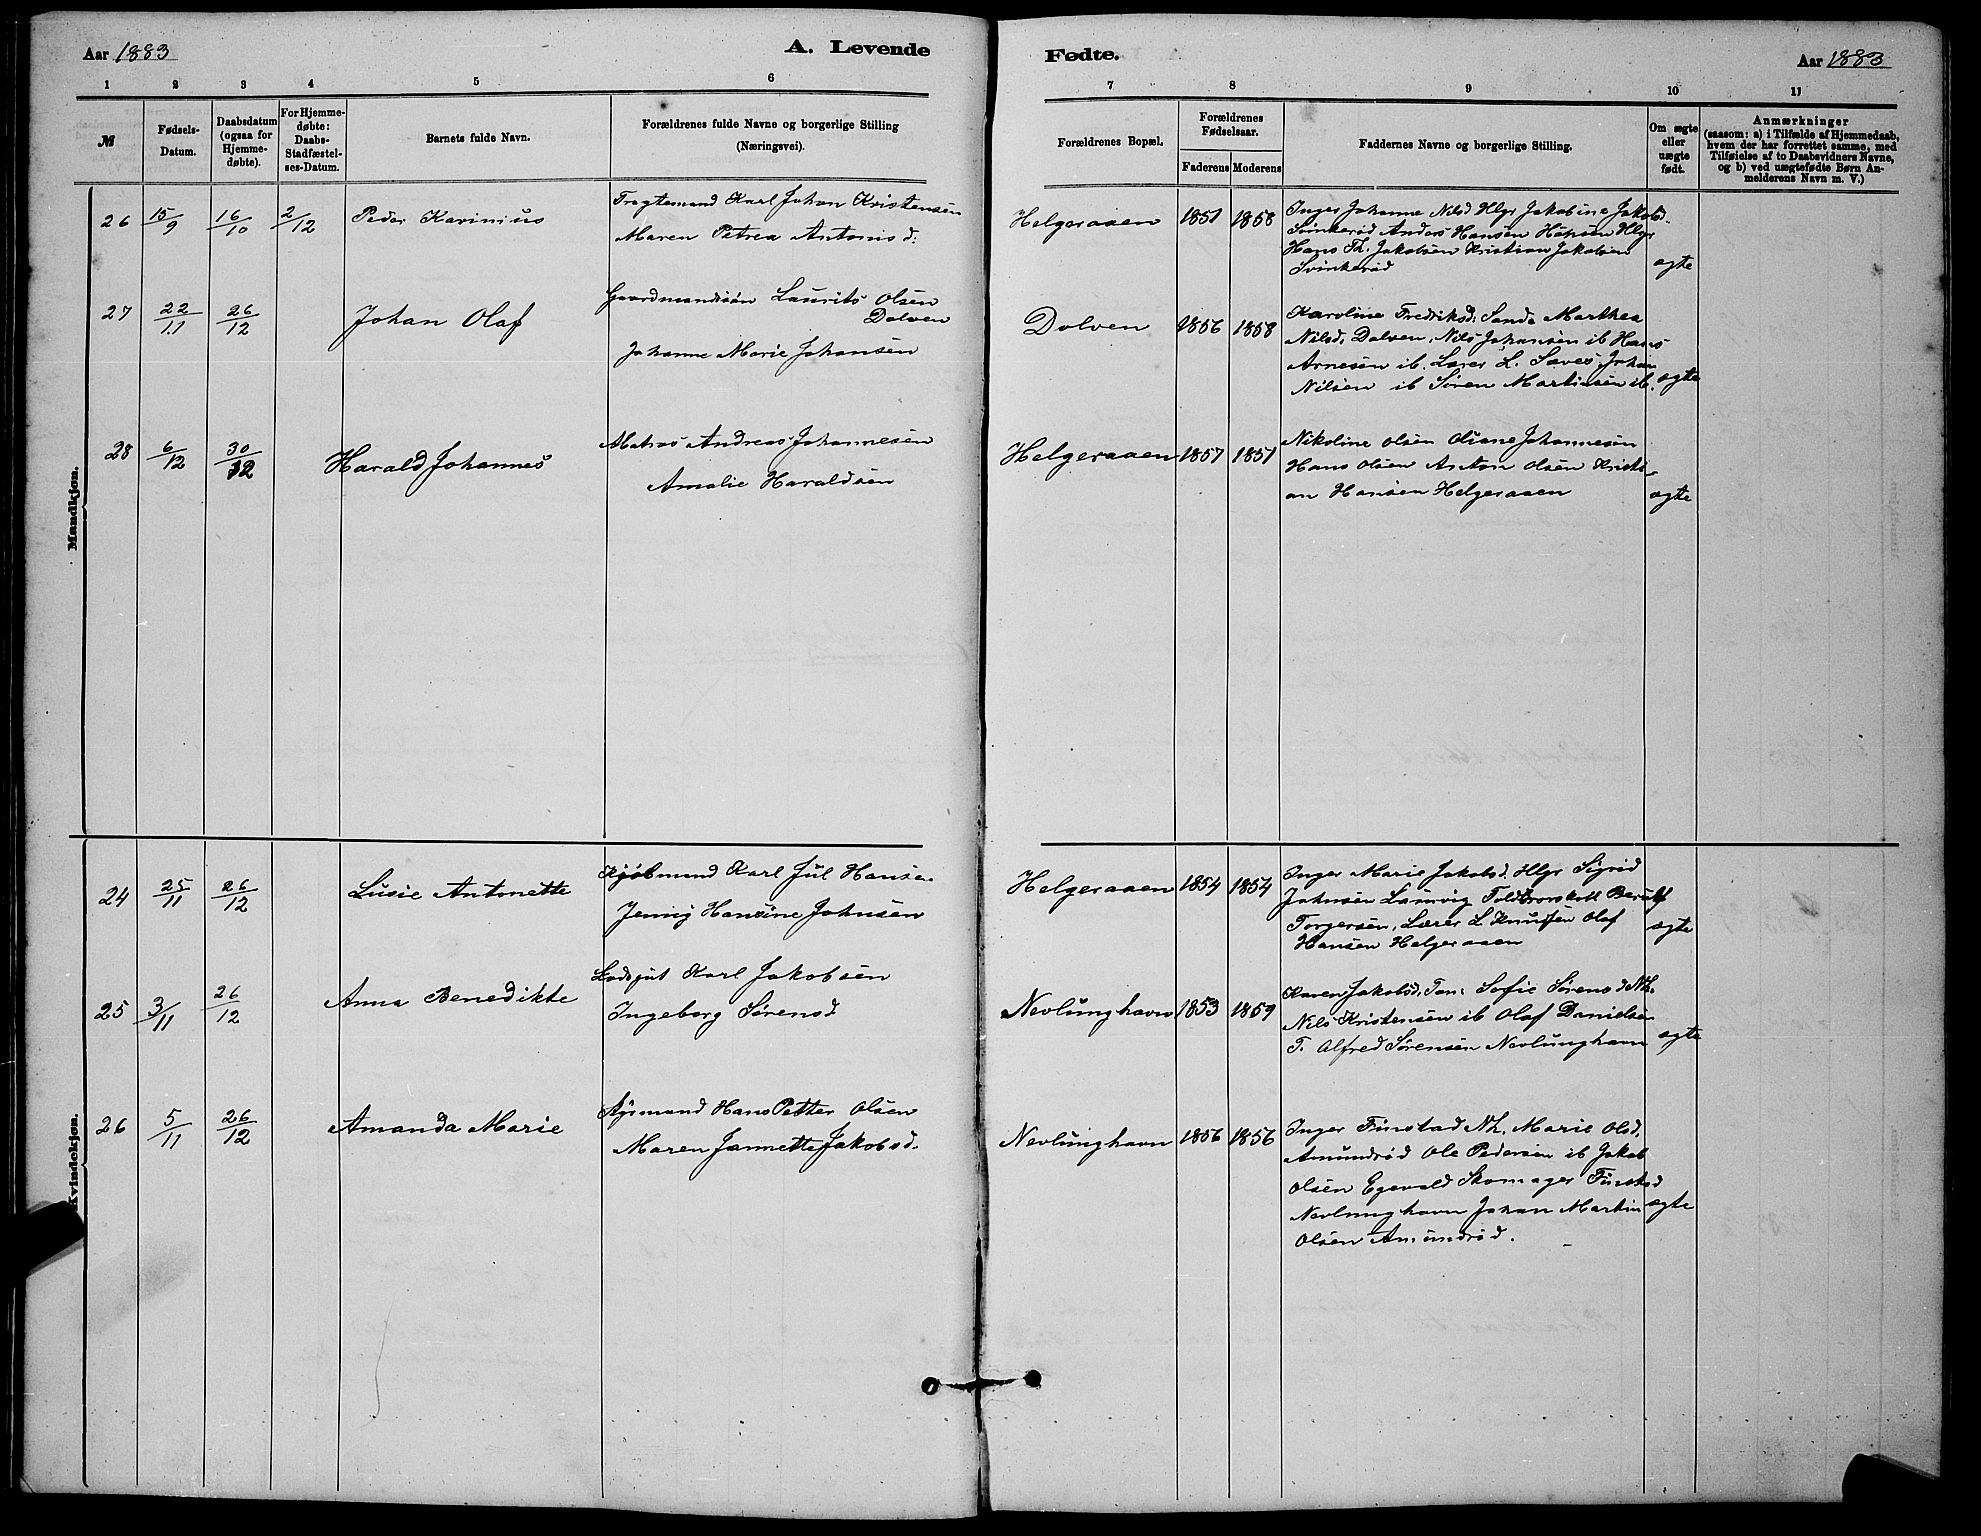 Aar 1883
A. Levende
1 2 3 4 5 6
M
Fødsels-
Datum.
Daabsdatum
(ogsaa for
Hjemme-
døbte).
For Hjemme-
døbte:
Daabs-
Stadfæstel-
ses-Datum.
Barnets fulde Navn.
Forældrenes fulde Navne og borgerlige Stilling
(Næringsvei).
Mandkjøn.
26 15/9 16/10 2/12 Peder Karinius
Karl Johan Kristensen
Maren Petrea Antonisd:
27 22/11 26/12 Johan Olaf
Gaardmandssøn Laurits Olsen
Dolven
Johanne Marie Johansen
28 6/12 30/12 Harald Johannes
Matros Andreas Johannesen
Amalie Haraldsen
Kvindekjøn.
24 25/11 26/12 Lusie Antonette
Kjøbmand Karl Jul Hansen
Jenny Hansine Johnsen
25 3/11 26/12 Anna Benedikte
Karl Jakobsen
Ingeborg Sørensd
26 5/11 26/12 Amanda Marie
Hans Petter Olsen
Maren Jannette Jakobsd.
Fødte.
Aar 1883
7 8 9 10 11
Forældrenes Bopæl.
Forældrenes
Fødselsaar.
Faderens Moderens
Faddernes Navne og borgerlige Stilling.
Om ægte
eller
uægte
født.
Anmærkninger
(saasom: a) i Tilfælde af Hjemmedaab,
hvem der har forrettet samme, med
Tilføielse af to Daabsvidners Navne,
og b) ved uægtefødte Børn An-
melderens Navn m. V.)
Helgeraaen 1851 1858
Inger Johanne Nilsd Hlgr Jakobine Jakobsd.
Svinkerød Anders Hansen Hlgr
Hans Th. Jakobsen Kristian Jakobsen
Svinkerød
ægte
Dolven 1856 1858
Karoline Fredriksd: Sanda Marthea
Nilsd. Dolven. Nils Johansen ib Hans
Arnesen ib. Lærer L. Johan
Nilsen ib Søren Martinsen ib. ægte
Helgeraaen 1857 1851
Nikoline Olsen Oliane Johannesen
Hans Olsen Anton Olsen Kristi-
an Hansen Helgeraaen
ægte
Helgeraaen 1854 1854
Inger Marie Jakobsd. Hlgr Sigrid
Johnsen Laurvig
Torgersen, Lærer L Knutsen Olaf
Hansen Helgeraaen
ægte
Nevlunghavn 1853 1859
Karen Jakobsd. Sofie Sørensd Nh.
Nils Kristensen ib Olaf Danielsen
T. Alfred Sørensen Nevlunghavn ægte
Nevlunghavn 1856 1856
Inger Finstad Nh. Marie Olsd.
Amundrød Ole Pedersen ib Jakob
Olsen Egevald Skomager Finstad
Nevlunghavn Johan Martin ægte
Olsen Amundrød.